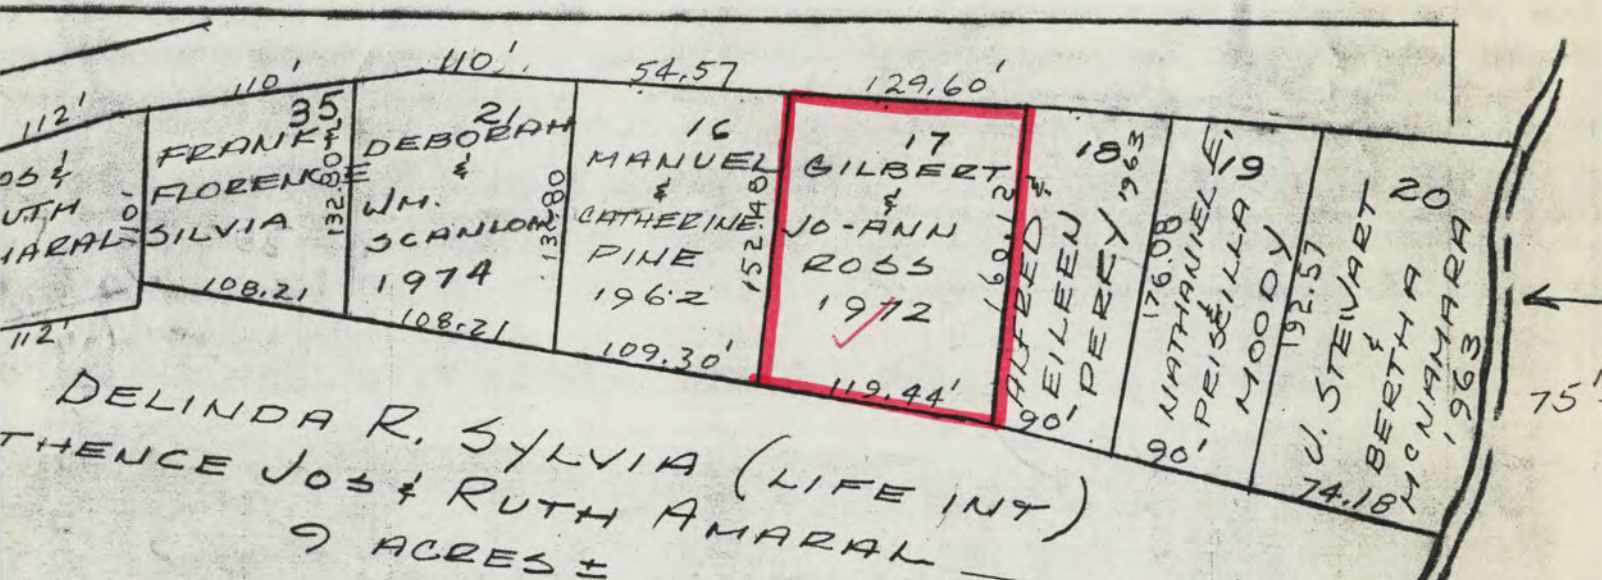 112'
OS &
UTH
MARAL
110'
112'
110'
35
FRANK &
FLORENCE
SILVIA
132.80
108.21
110'
21
DEBORAH
&
WM.
SCANLON
1974
132.80
108.21
54.57
16
MANUEL
&
CATHERINE
PINE
1962
152.48
109.30'
129.60'
17
GILBERT
&
JO-ANN
ROSS
1972
119.44'
18
ALFRED &
EILEEN
PERRY 1963
90'
176.08
19
NATHANIEL E,
&
PRISCILLA
MOODY
90'
192.57
20
J. STEWART
&
BERTHA
MCNAMARA
1963
74.18
75'
DELINDA R. SYLVIA (LIFE INT)
THENCE JOS & RUTH AMARAL
9 ACRES ±